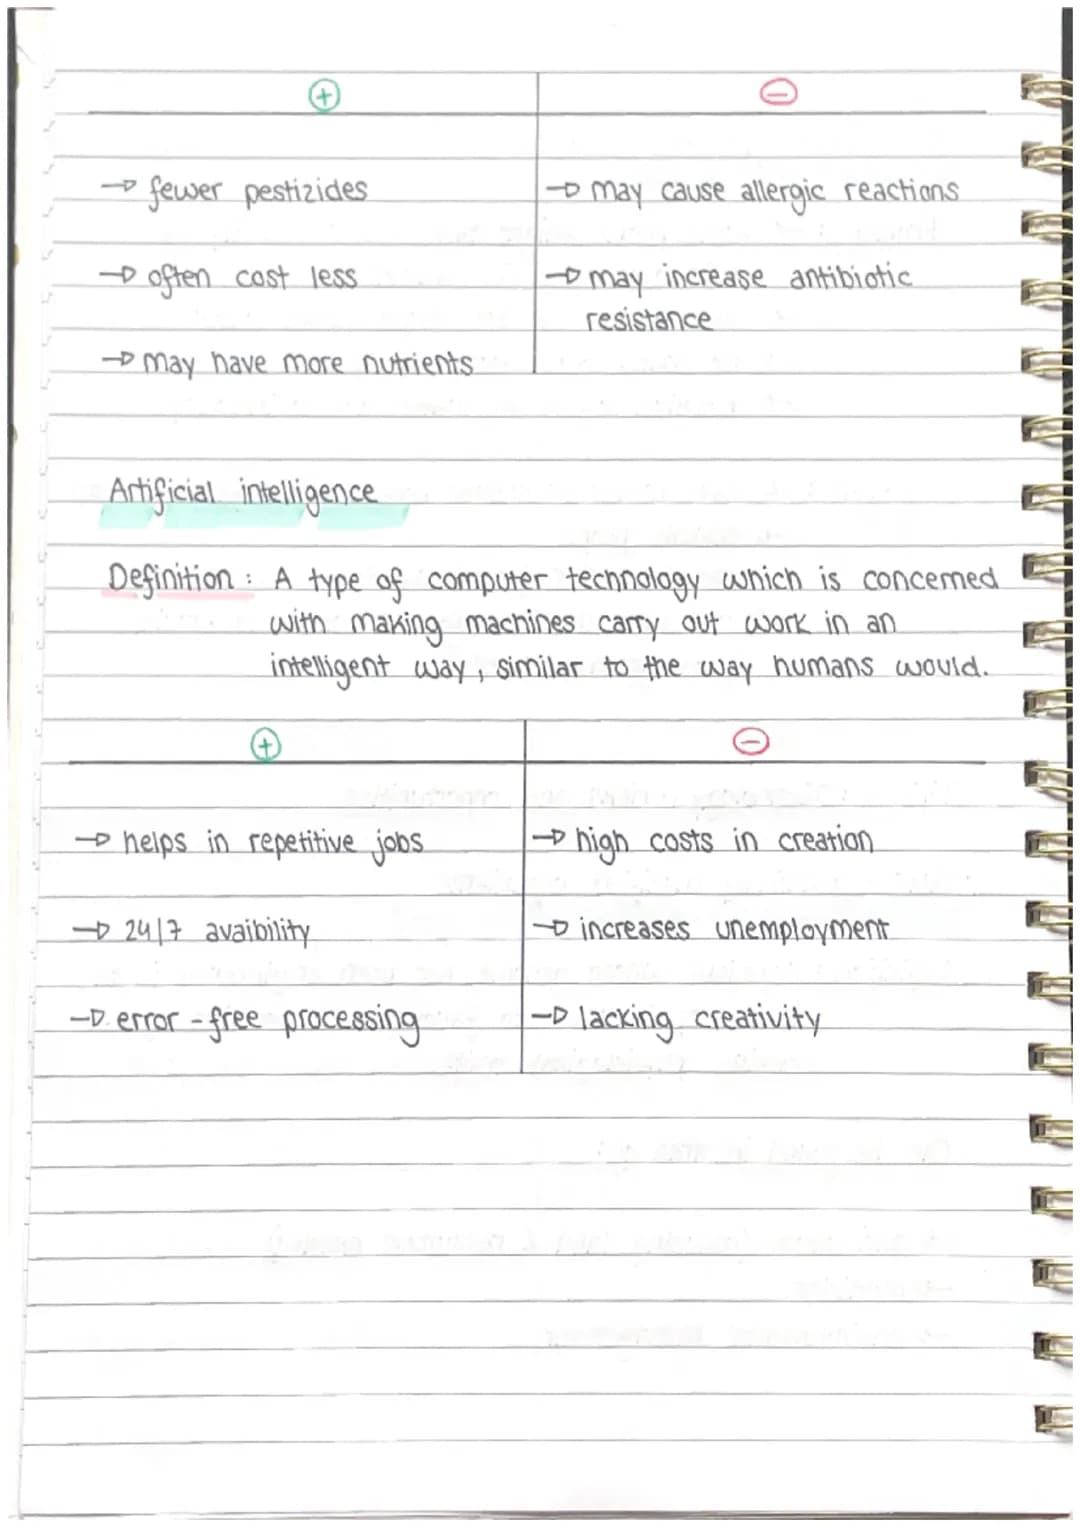 + −
→ fewer pestizides → may cause allergic reactions
→ often cost less → may increase antibiotic
resistance
→ may have more nutrients
Artificial intelligence
Definition : A type of computer technology which is concerned
with making machines carry out work in an
intelligent way, similar to the way humans would.
+ −
→ helps in repetitive jobs → high costs in creation
→ 24/7 avaibility → increases unemployment
→ error-free processing → lacking creativity